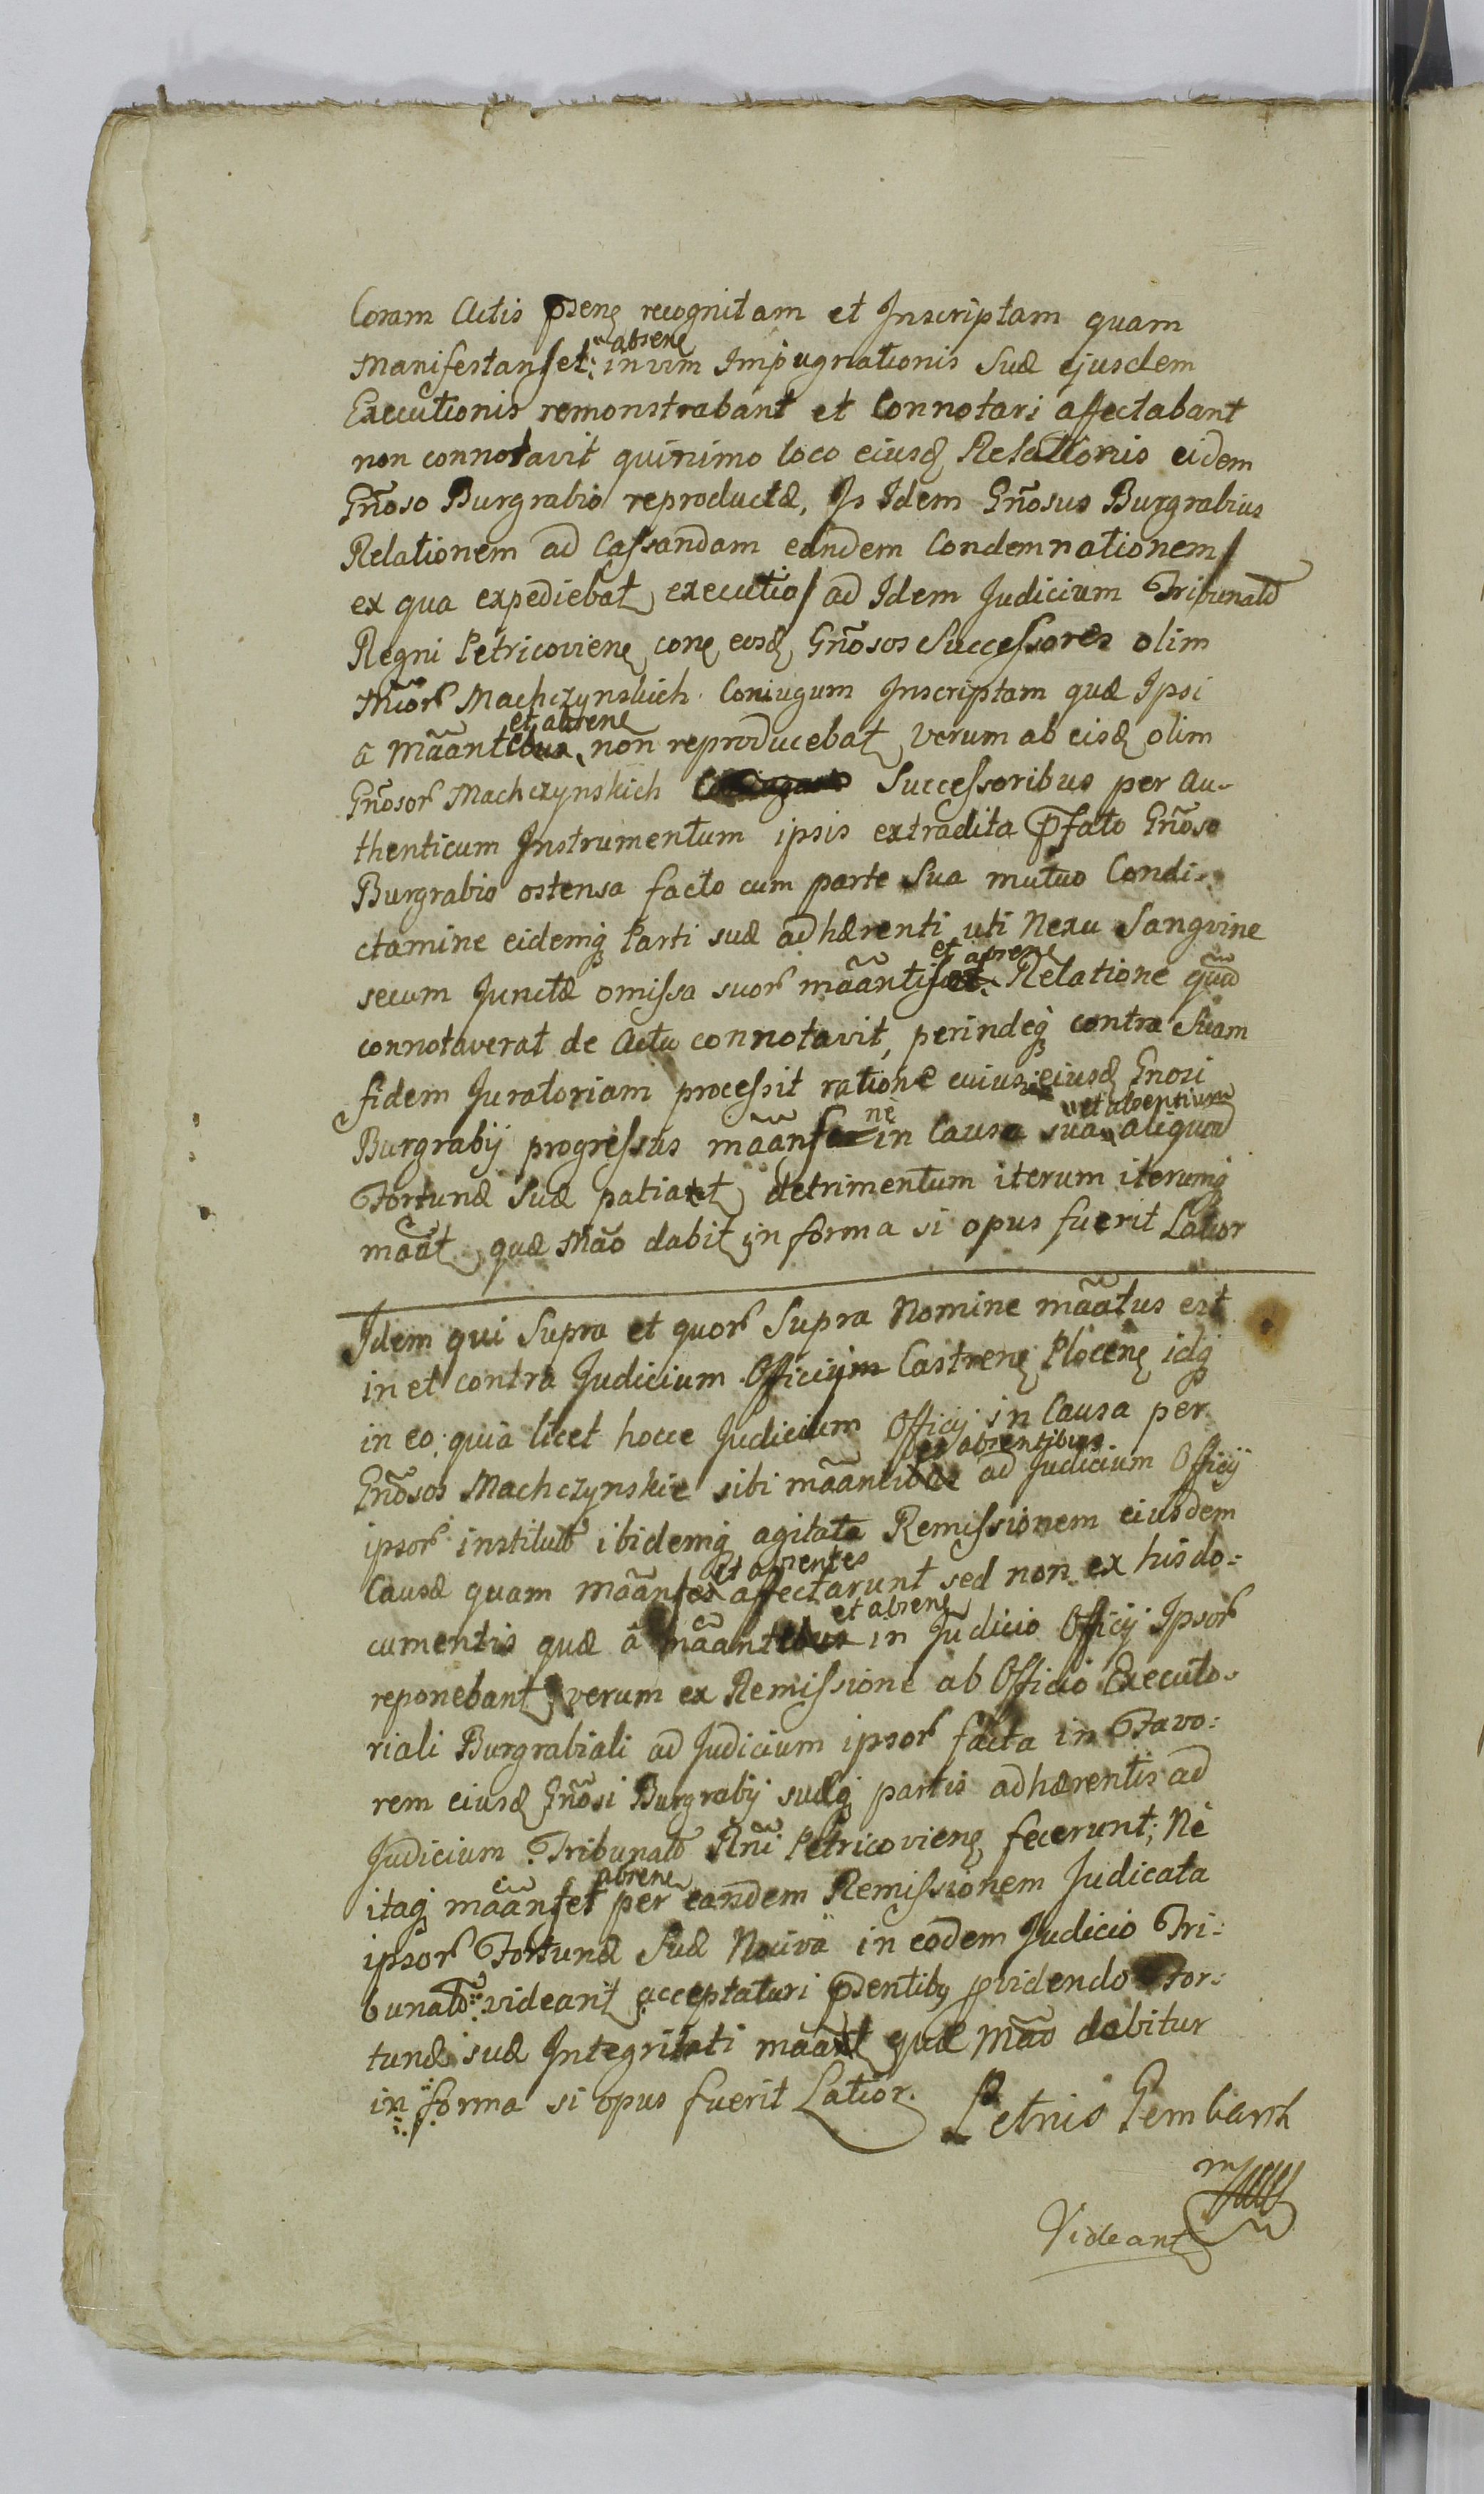 Coram Actis pñseng recognitam et Inscriptam quam
Manifestans et absene in vim Impugnationis Suæ ejusdem
Executionis remonstrabant et Connotari affectabant
non connotavit quinimo loco eiusd Relationis eidem
Gñoso Burgrabio reproductæ, Is Idem Gñosus Burgrabius
Relationem ad Cassandam eandem Condemnationem/
ex qua expediebat executio/ ad Idem Judicium Tribunald
Regni Petricoviene cone eosd Gñosos Successores olim
Mcor Machczynskich Coniugum Inscriptam quæ Ipsi
a Mãante et absene non reproducebat verum ab eisd olim
Gñosor Machczynskich Successoribus per au-
thenticum Instrumentum ipsis extradita Pfato Gñoso
Burgrabio ostensa facto cum parte Sua mutuo Condi-
ctamine eidemq Parti suæ adhærenti uti Nexu Sangvine
secum Junctæ omissa suor mãantis et absene Relatione quã
connotaverat de Actu connotavit, perindeq contra Suam
fidem Juratoriam processit ratione cuius eiusd Gnosi
Burgrabij progressus mãans ne in Causa sua et absentium aliquod
Fortunæ Suæ patiat detrimentum iterum iterumq
mãat quæ Mão dabit in forma si opus fuerit Latior
Idem qui Supra et quor Supra Nomine mãatus est
in et contra Judicium Officij Castrene Plocene idq
in eo, quia licet hocce Judicium Officij in Causa per
Gñosos Machczynskie sibi mãanti et absentibus ad Judicium Officij
ipsor institut ibidemq agitata Remissionem eiusdem
Causæ quam mãans et absentes affectarunt sed non ex his do=
cumentis quæ â mãante et absene in Judicio Officij Ipsor
reponebant verum ex Remissione ab Officio Executo-
riali Burgrabiali ad Judicium ipsor facta in Favo=
rem eiusd Gñosi Burgrabij suæq partis adhærentis ad
Judicium Tribunald Rñi Petricoviene fecerunt; Ne
itaq mãans et absene per eandem Remissionem Judicata
ipsor Fortunæ Suæ Nociva in eodem Judicio Tri-
bunald videant acceptaturi Psentibq pvidendo For-
tunæ suæ Integritati mãat quæ Mão dabitur
in forma si opus fuerit Latior. Petrus Gembarth
mp
Videant